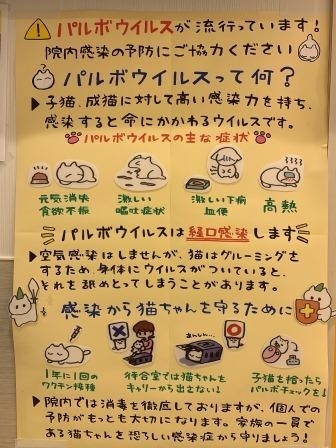 パルボウイルスが流行っています!
院内感染の予防にご協力ください
パルボウイルスって何?
▶子猫、成猫に対して高い感染力を持ち、
感染すると命にかかわるウイルスです。
パルボウイルスの主な症状
元気消失
食欲不振
激しい
嘔吐症状
激しい下痢
血便
高熱
パルボウイルスは経口感染します
▶空気感染はしませんが、猫はグルーミングを
するため、身体にウイルスがついていると、
それを舐めとってしまうことがあります。
感染から猫ちゃんを守るために
1年に1回の
ワクチン接種
待合室では猫ちゃんを
キャリーから出さない!
子猫を拾ったら
パルボチェックを!
▶院内では消毒を徹底しておりますが、個人での
予防がもっとも大切になります。家族の一員で
ある猫ちゃんを恐ろしい感染症から守りましょう!